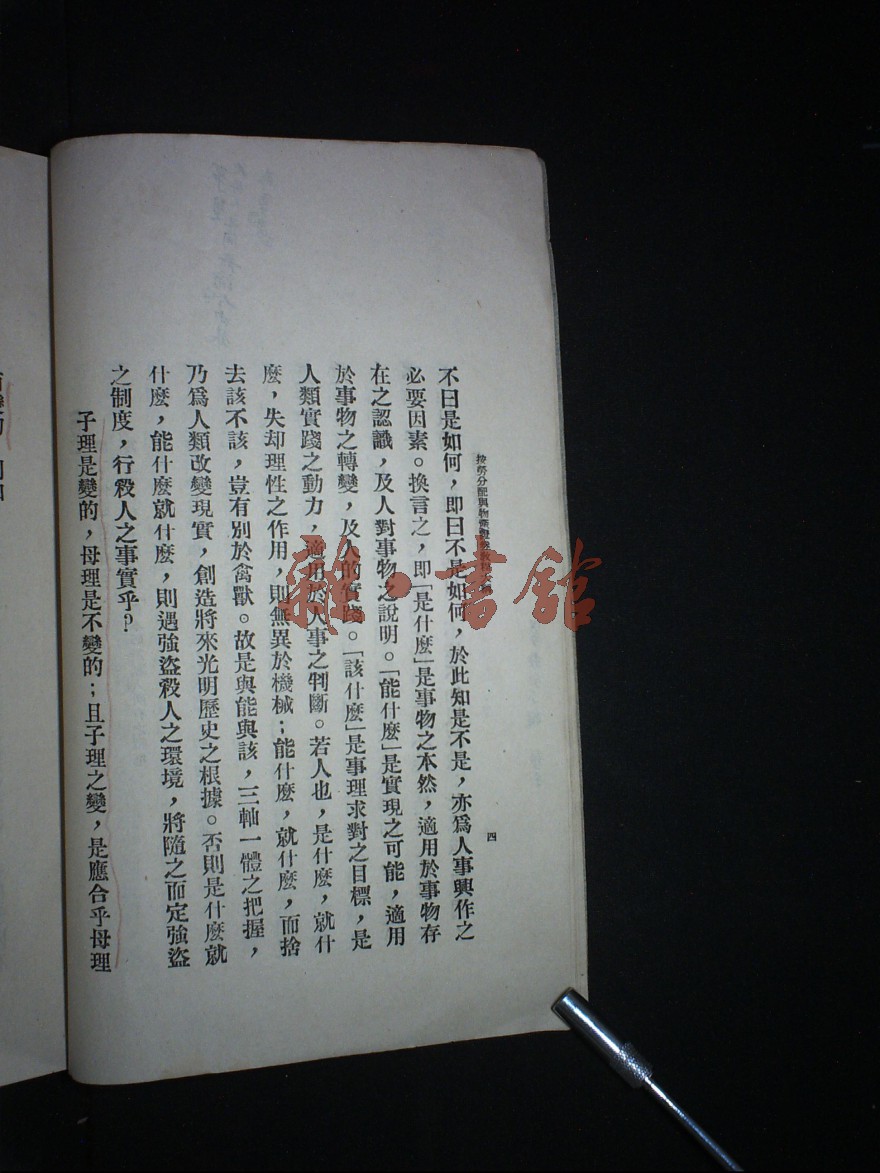 按勞分配與物
四
不曰是如何，即曰不是如何，於此知是不是，亦爲人事興作之
必要因素。換言之，即「是什麽」是事物之本然，適用於事物存
在之認識，及人對事物之說明。「能什麽」是實現之可能，適用
於事物之轉變，及人的實踐。「該什麽」是事理求對之目標，是
人類實踐之動力，適用於人事之判斷。若人也，是什麽，就什
麽，失却理性之作用，則無異於機械；能什麽，就什麽，而捨
去該不該，豈有別於禽獸。故是與能與該，三軸一體之把握，
乃爲人類改變現實，創造將來光明歷史之根據。否則是什麽就
什麽，能什麽就什麽，則遇強盜殺人之環境，將隨之而定強盜
之制度，行殺人之事實乎？
子理是變的，母理是不變的；且子理之變，是應合乎母理
雜·書館